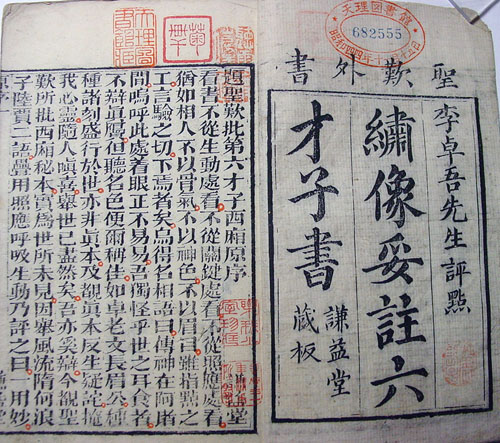 天理図書館
682555
聖歎外書
李卓吾先生評點
繡像妥註六
才子書
謙益堂
藏板
題聖歎批第六才子西廂原序
看書不從生動處看不從關鍵處看不從照應處看
猶如相人不以骨氣不以神色不以眉目雖指點之
工言驗之切下焉者矣烏得名相語曰傳神在阿堵
間嗚呼此處着眼正不易易吾獨怪乎世之耳食者
不辯真贋但聽名色便爾稱佳如卓老文長眉公種
種諸刻盛行於世亦非真本及覩真本反生疑詫掩
我心靈隨人嗔喜舉世已盡然矣吾亦奚辯今覩聖
歎所批西廂秘本實為世所未見因舉風流隋何浪
子陸賈二語疊用照應呼吸生動乃評之曰一用妙
原序